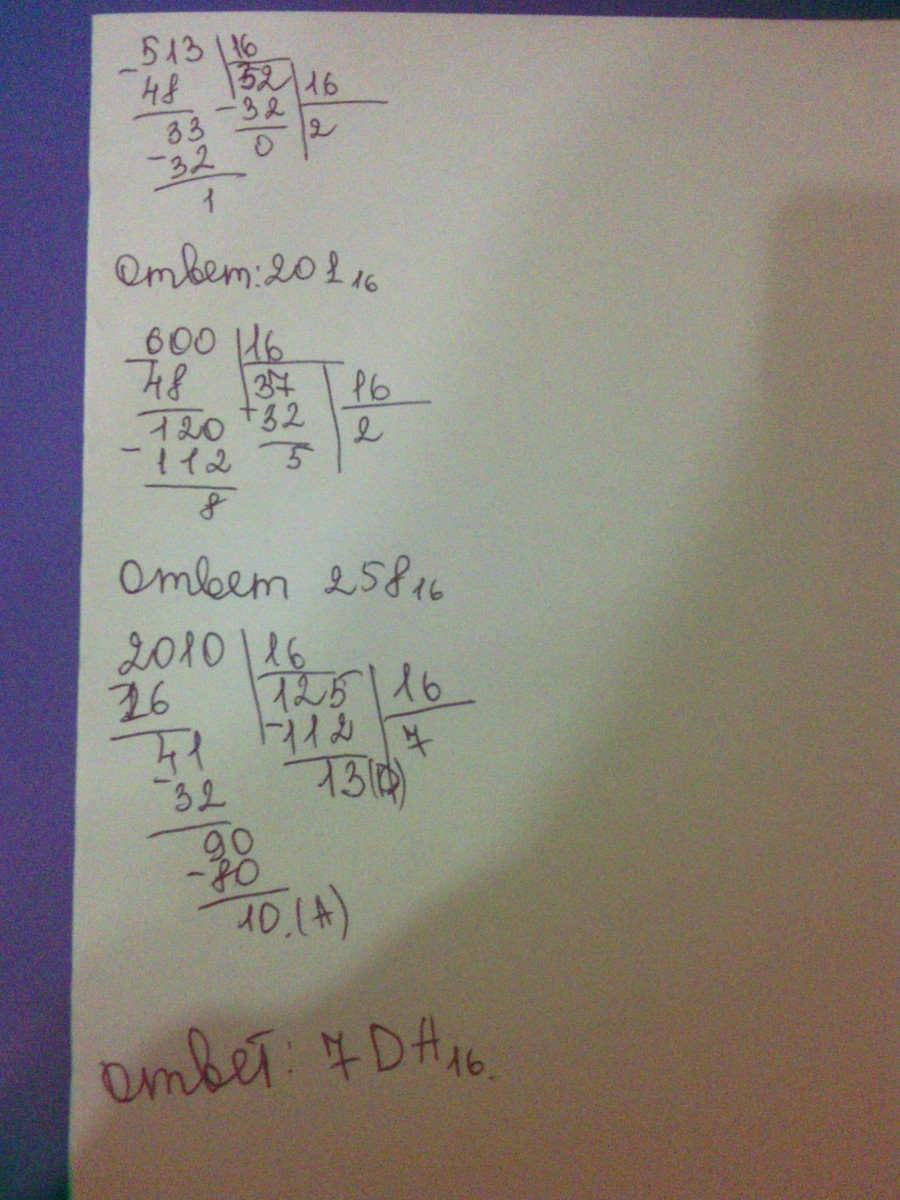 -513 |16
48 |52 |16
33 -32 |2
-32 0
1
Ответ: 201₁₆
600 |16
48 |37 |16
-120 32 |2
-112 5
8
Ответ 258₁₆
2010 |16
16 |125 |16
41 -112 |7
-32 13(D)
90
-80
10.(A)
Ответ: 7DA₁₆.